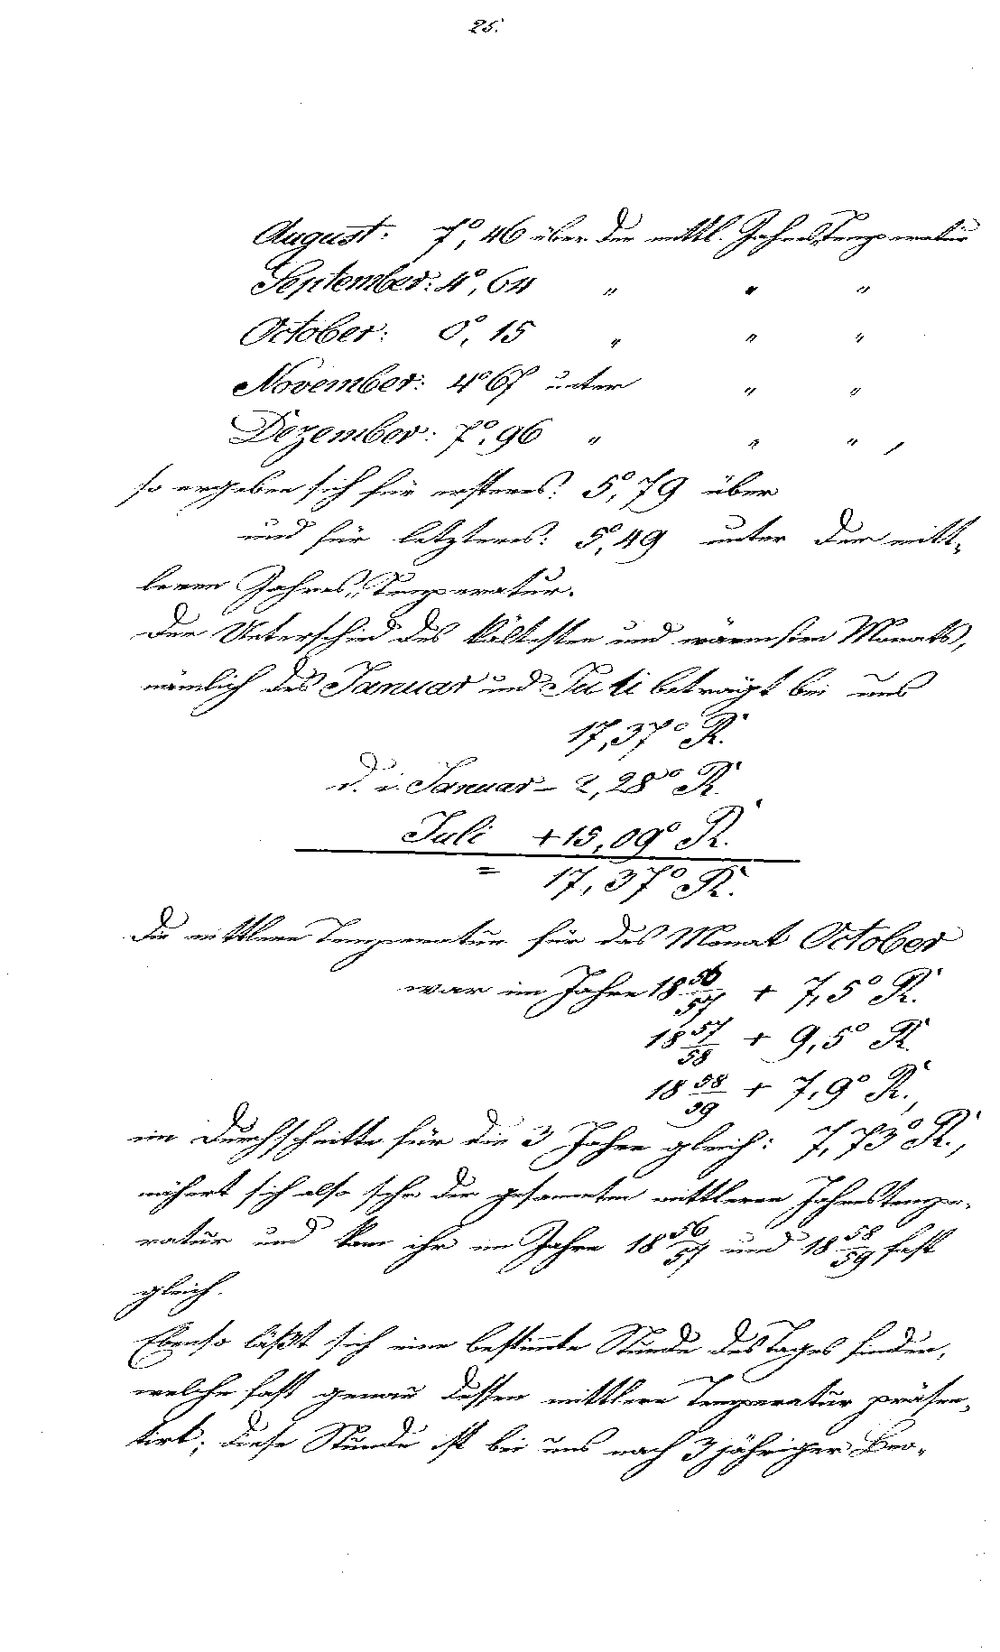 25.
August: 7°,46 über der mittl. Jahres„Temperatur
September: 4°,64 " " "
October: 0°,15 " " "
November: 4°67 unter " "
Dezember: 7°,96 " " " ,
so ergeben sich für ersteres: 5°,79 über
und für letzteres: 5°,49 unter der mitt-
leren Jahres„Temperatur.
Der Unterschied des kältesten und wärmsten Monats,
nämlich des Januar und Juli beträgt bei uns
17,37° R.
d. i. Januar – 2,28° R.
Juli + 15,09° R.
= 17,37° R.
Die mittlere Temperatur für das Monat October
war im Jahre 18 56/57 + 7,5° R.
18 57/58 + 9,5° R
18 58/59 + 7,9° R.,
im Durchschnitte für die 3 Jahre gleich: 7,73° R.,
nähert sich also sehr der gesammten mittleren Jahrestempe-
ratur und kam ihr im Jahre 18 56/57 und 18 58/59 fast
gleich.
Ebenso läßt sich eine bestimmte Stunde des Tages finden,
welche fast genau dessen mittlere Temperatur präsen-
tirt; diese Stunde ist bei uns nach 3jähriger Beo-